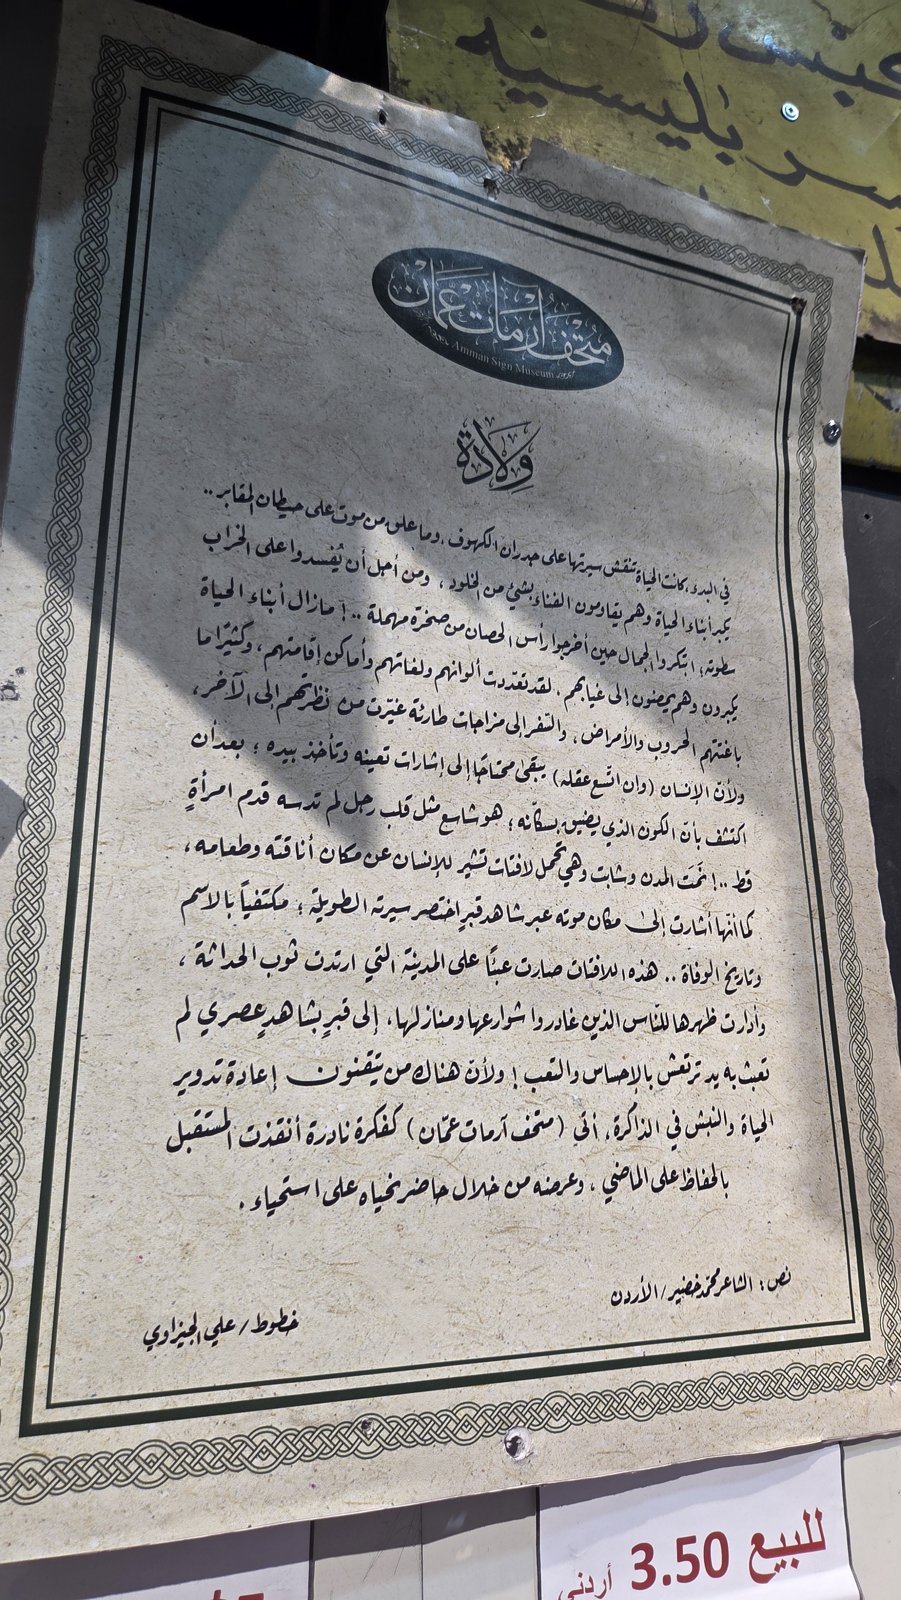 عبنـ
سر بليسينه
متحف أرمات عمّان
Amman Sign Museum
وِلَادَة
في البدء، كانت الحياة تنقش سيرتها على جدران الكهوف، وما علق من موت على حيطان المقابر ..
يكبر أبناء الحياة وهم يقاومون الفناء بشيءٍ من الخلود، ومن أجل أن يُفسدوا على الخراب
سطوته؛ ابتكروا الجمال حين أخرجوا رأس الحصان من صخرة مهملة ..! مازال أبناء الحياة
يكبرون وهم يمضون إلى غيابهم. لقد تعدّدت ألوانهم ولغاتهم وأماكن إقامتهم، وكثيرًا ما
باغتتهم الحروب والأمراض، والسفر إلى مزاجات طارئة غيّرت من نظرتهم إلى الآخر،
ولأنّ الإنسان (وإن اتّسع عقله) يبقى محتاجًا إلى إشارات تعينه وتأخذ بيده؛ بعد أن
اكتشف بأنّ الكون الذي يضيق بسكّانه؛ هو شاسع مثل قلب رجل لم تدسه قدم امرأةٍ
قط ..! نَمَت المدن وشابت وهي تحمل لافتات تشير للإنسان عن مكان أناقته وطعامه،
كما أنّها أشارت إلى مكان موته عبر شاهد قبرٍ اختصر سيرته الطويلة؛ مكتفيًا بالاسم
وتاريخ الوفاة .. هذه اللافتات صارت عبئًا على المدينة التي ارتدت ثوب الحداثة،
وأدارت ظهرها للنّاس الذين غادروا شوارعها ومنازلها، إلى قبرٍ بشاهدٍ عصري لم
تعبث به يد ترتعش بالإحساس والتعب! ولأنّ هناك من يتقنون إعادة تدوير
الحياة والنبش في الذاكرة، أتى (متحف آرمات عمّان) كفكرة نادرة أنقذت المستقبل
بالحفاظ على الماضي، وعرضه من خلال حاضر نحياه على استحياء.
نص: الشاعر محمد خضير/الأردن
خطوط/ علي الجيزاوي
للبيع 3.50 أردني